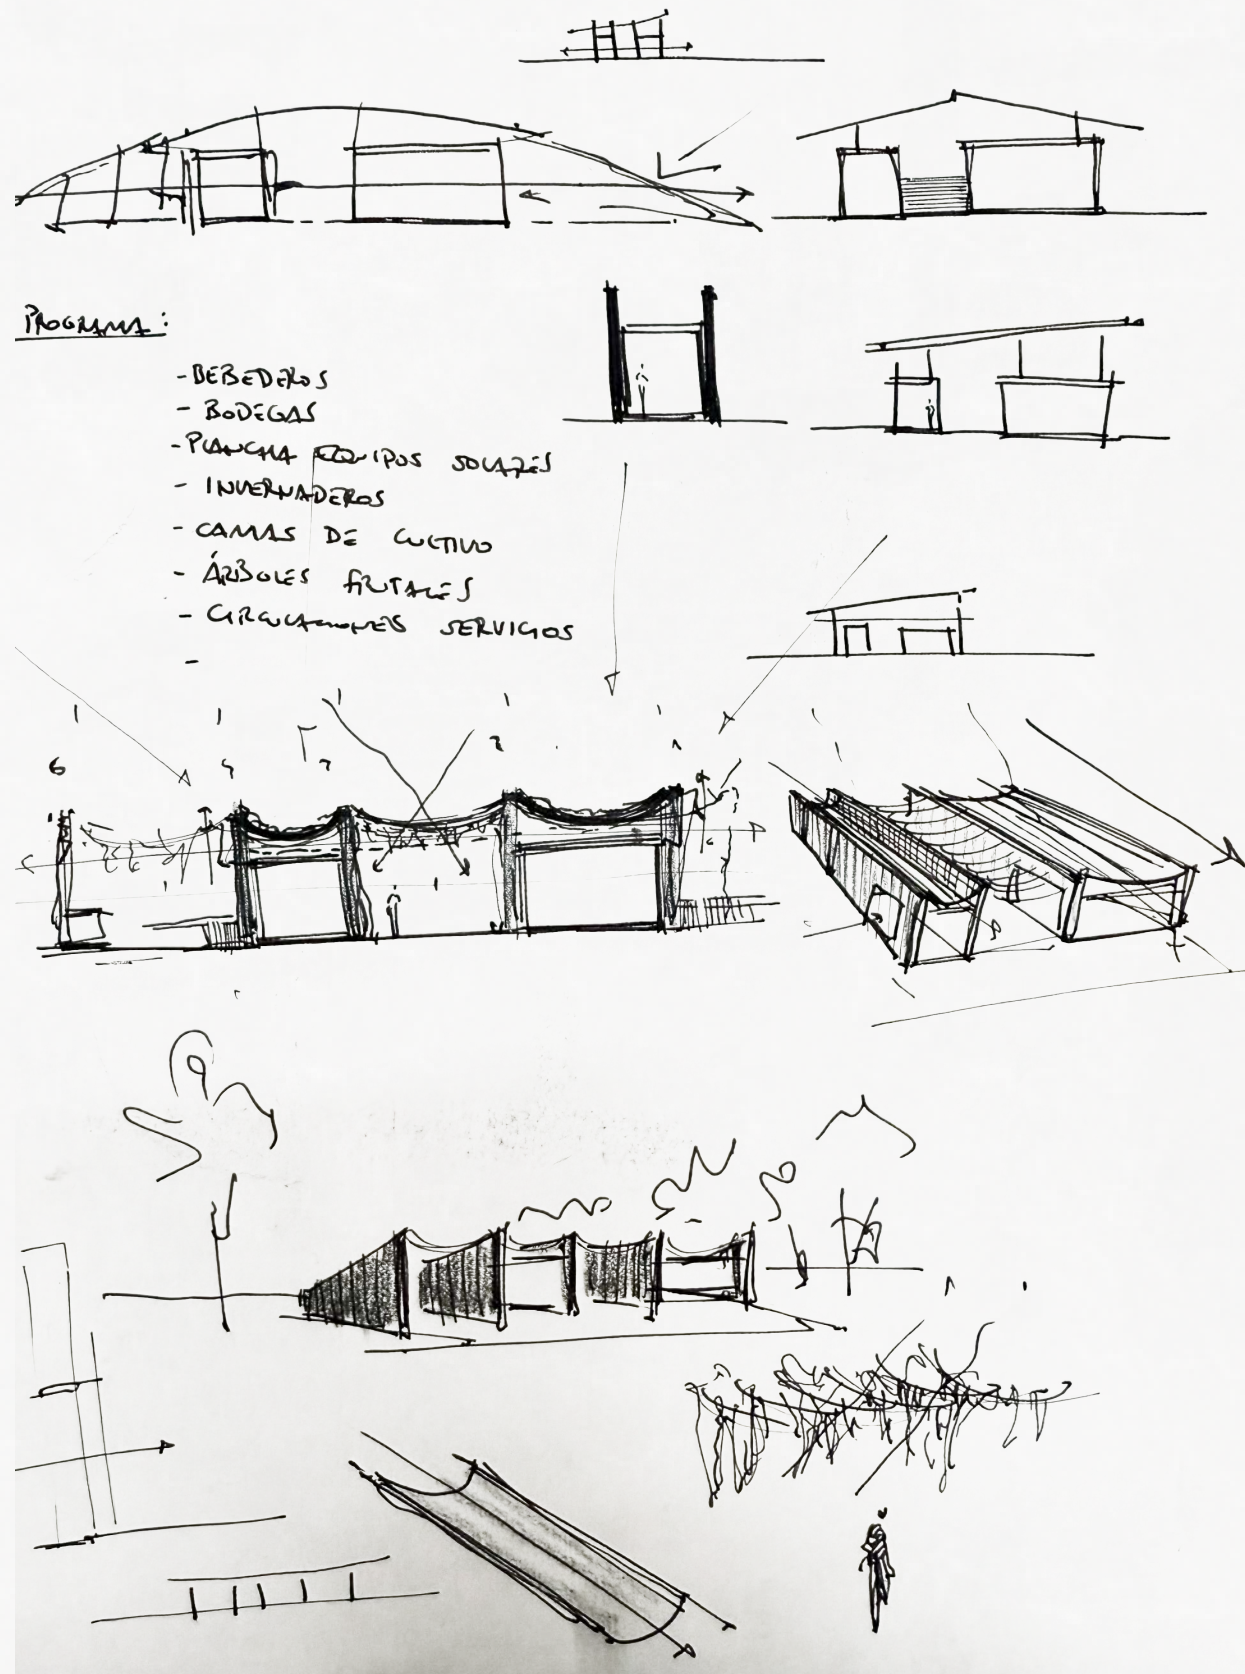 PROGRAMA:
- BEBEDEROS
- BODEGAS
- PLANCHA EQUIPOS SOLARES
- INVERNADEROS
- CAMAS DE CULTIVO
- ÁRBOLES FRUTALES
- CIRCULACIONES SERVICIOS
-
6